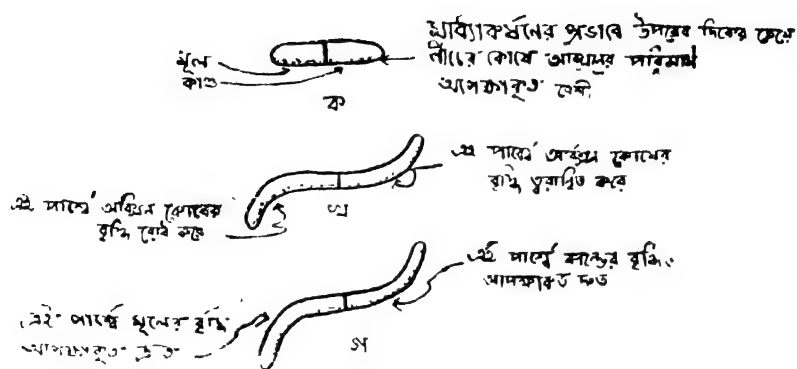 মাধ্যাকর্ষনের প্রভাবে উপরের দিকের চেয়ে
নীচের কোষে অক্সিনের পরিমাণ
অপেক্ষাকৃত বেশী
মূল
কাণ্ড
ক
এই পার্শ্বে অক্সিন কোষের
বৃদ্ধি ত্বরান্বিত করে
এই পার্শ্বে অক্সিন কোষের
বৃদ্ধি রোধ করে
খ
এই পার্শ্বে কান্ডের বৃদ্ধি
অপেক্ষাকৃত দ্রুত
এই পার্শ্বে মূলের বৃদ্ধি
অপেক্ষাকৃত দ্রুত
গ